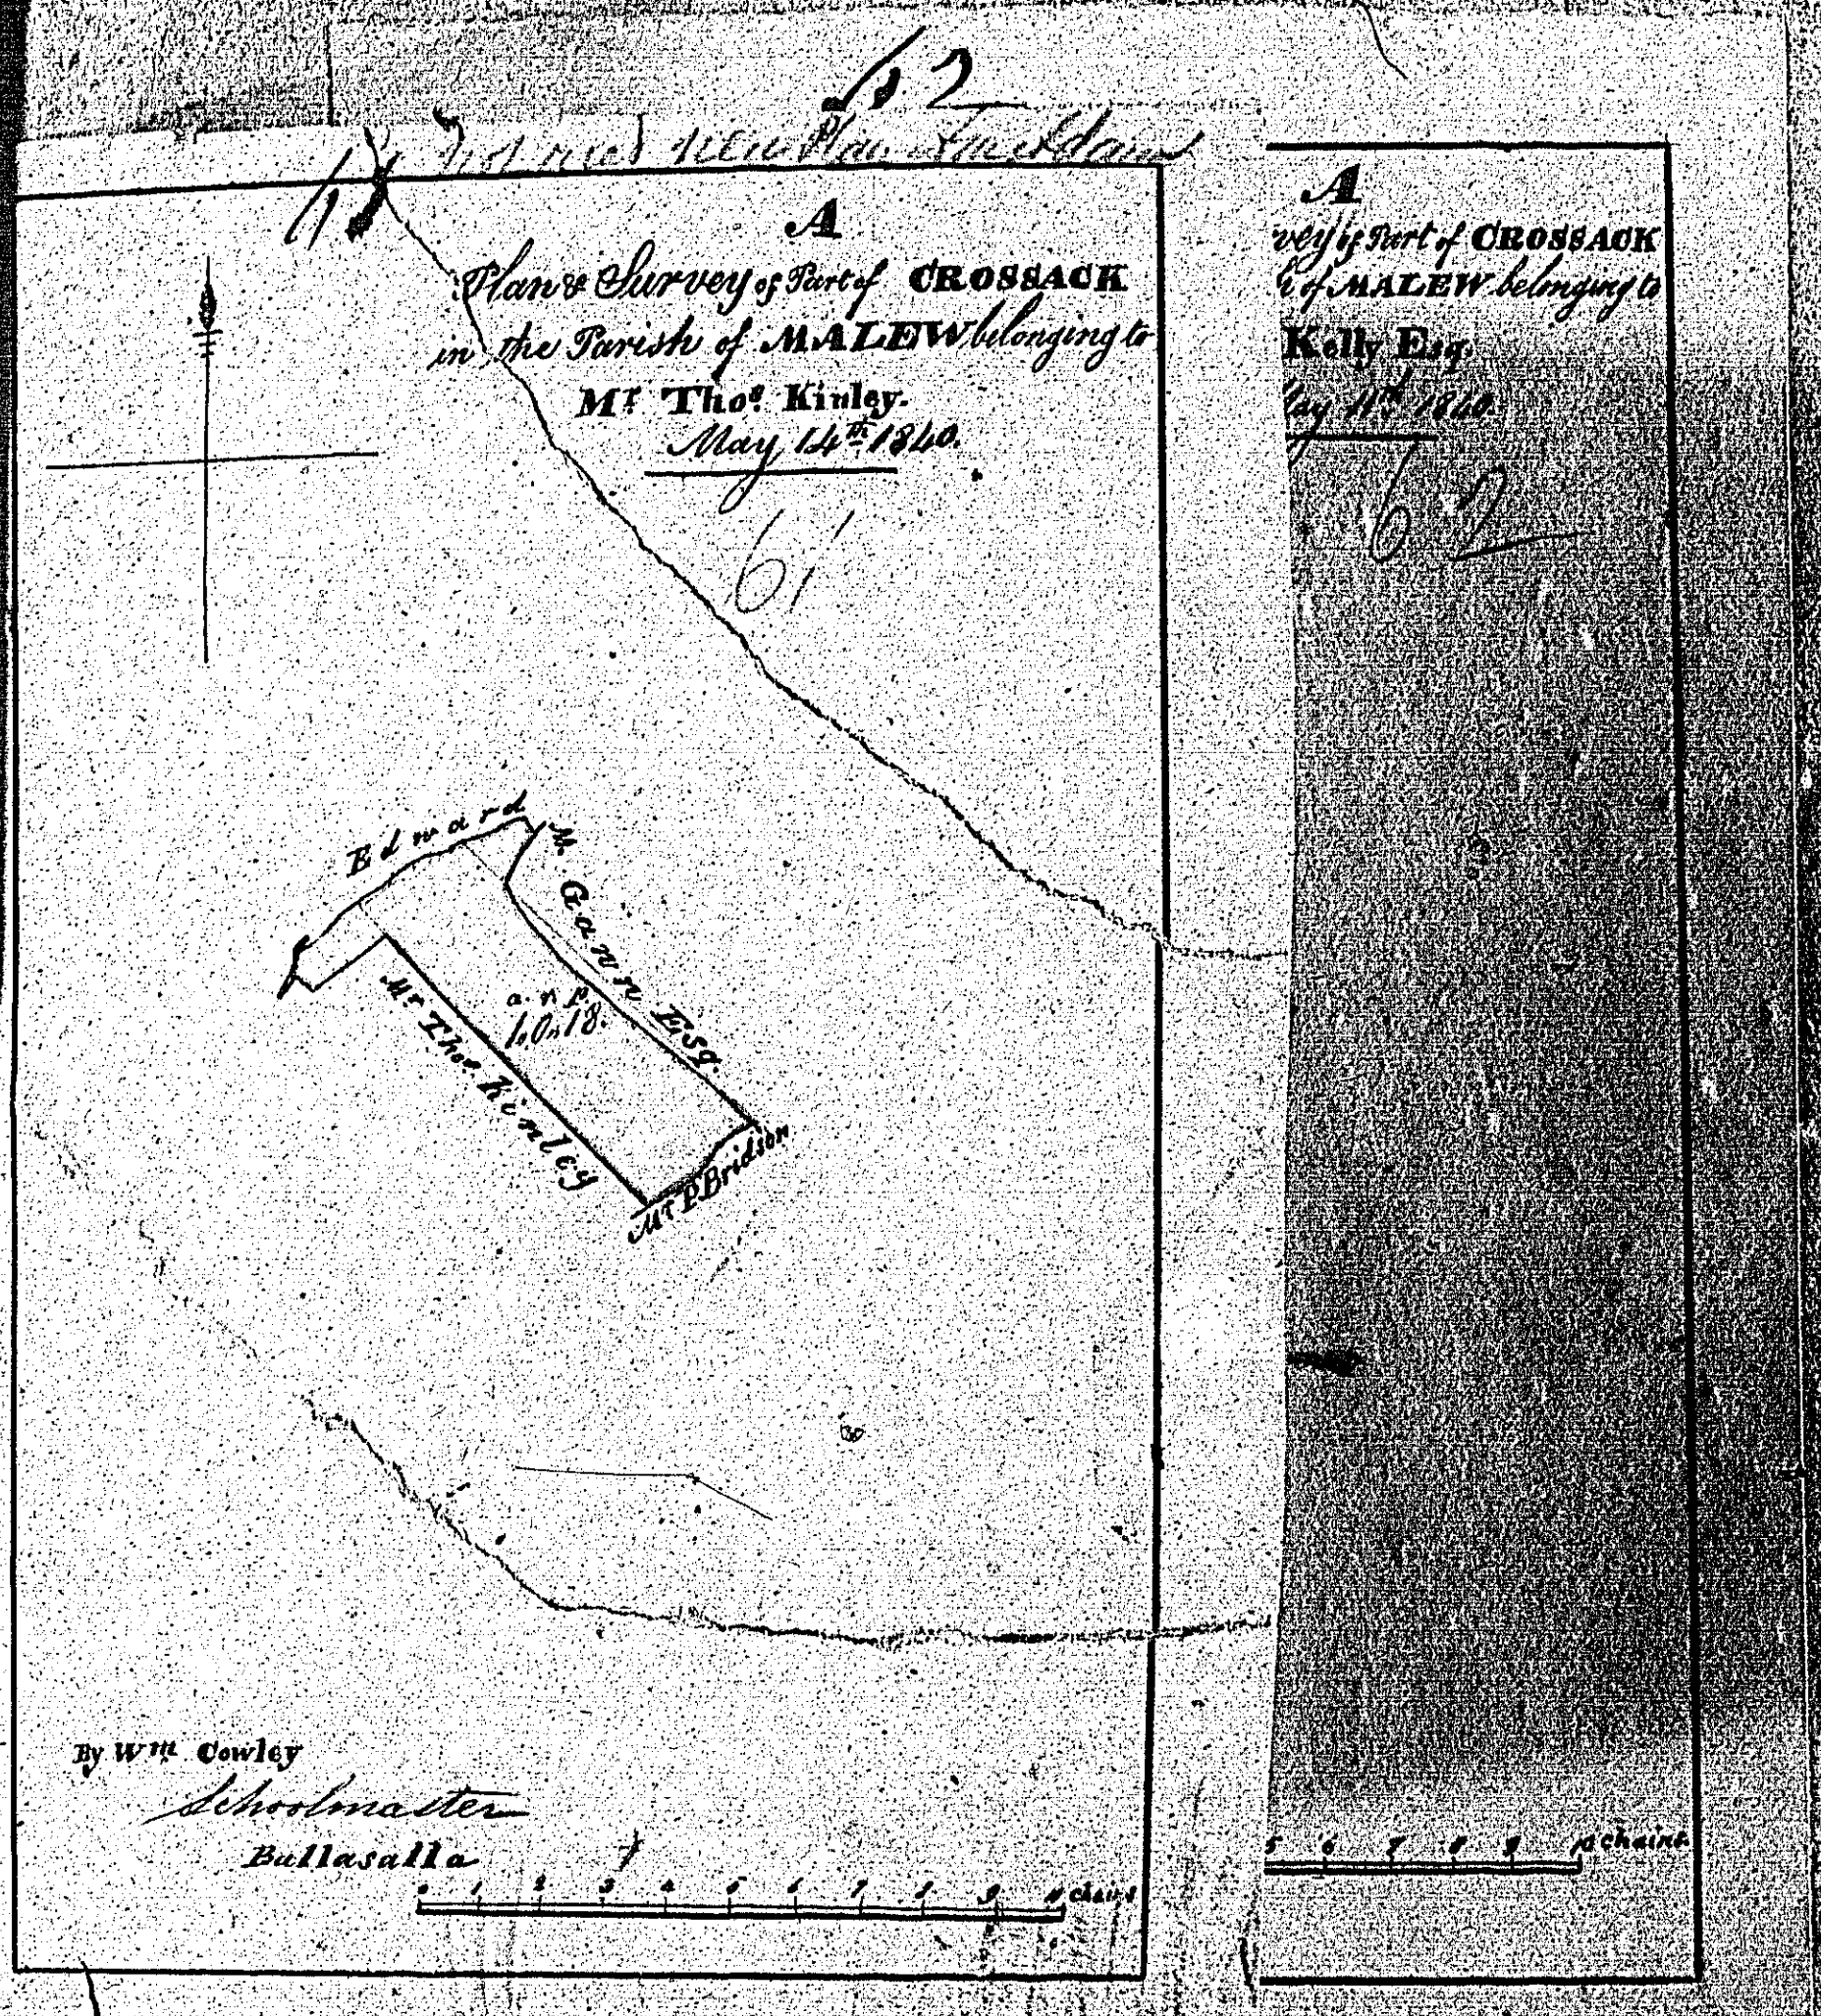 62
not
61
A
Plan & Survey of Part of CROSSACK
in the Parish of MALEW belonging to
Mr. Thos. Kinley.
May 14th 1840.
61
Edward
M. Gawn Esq.
a. r. p.
1. 0. 18.
Mr Thos Kinley
Mr P. Bridson
By Wm Cowley
Schoolmaster
Ballasalla
0 1 2 3 4 5 6 7 8 9 10 chains
A
vey of Part of CROSSACK
h of MALEW belonging to
Kelly Esq.
May 11th 1840.
62
5 6 7 8 9 10 chains